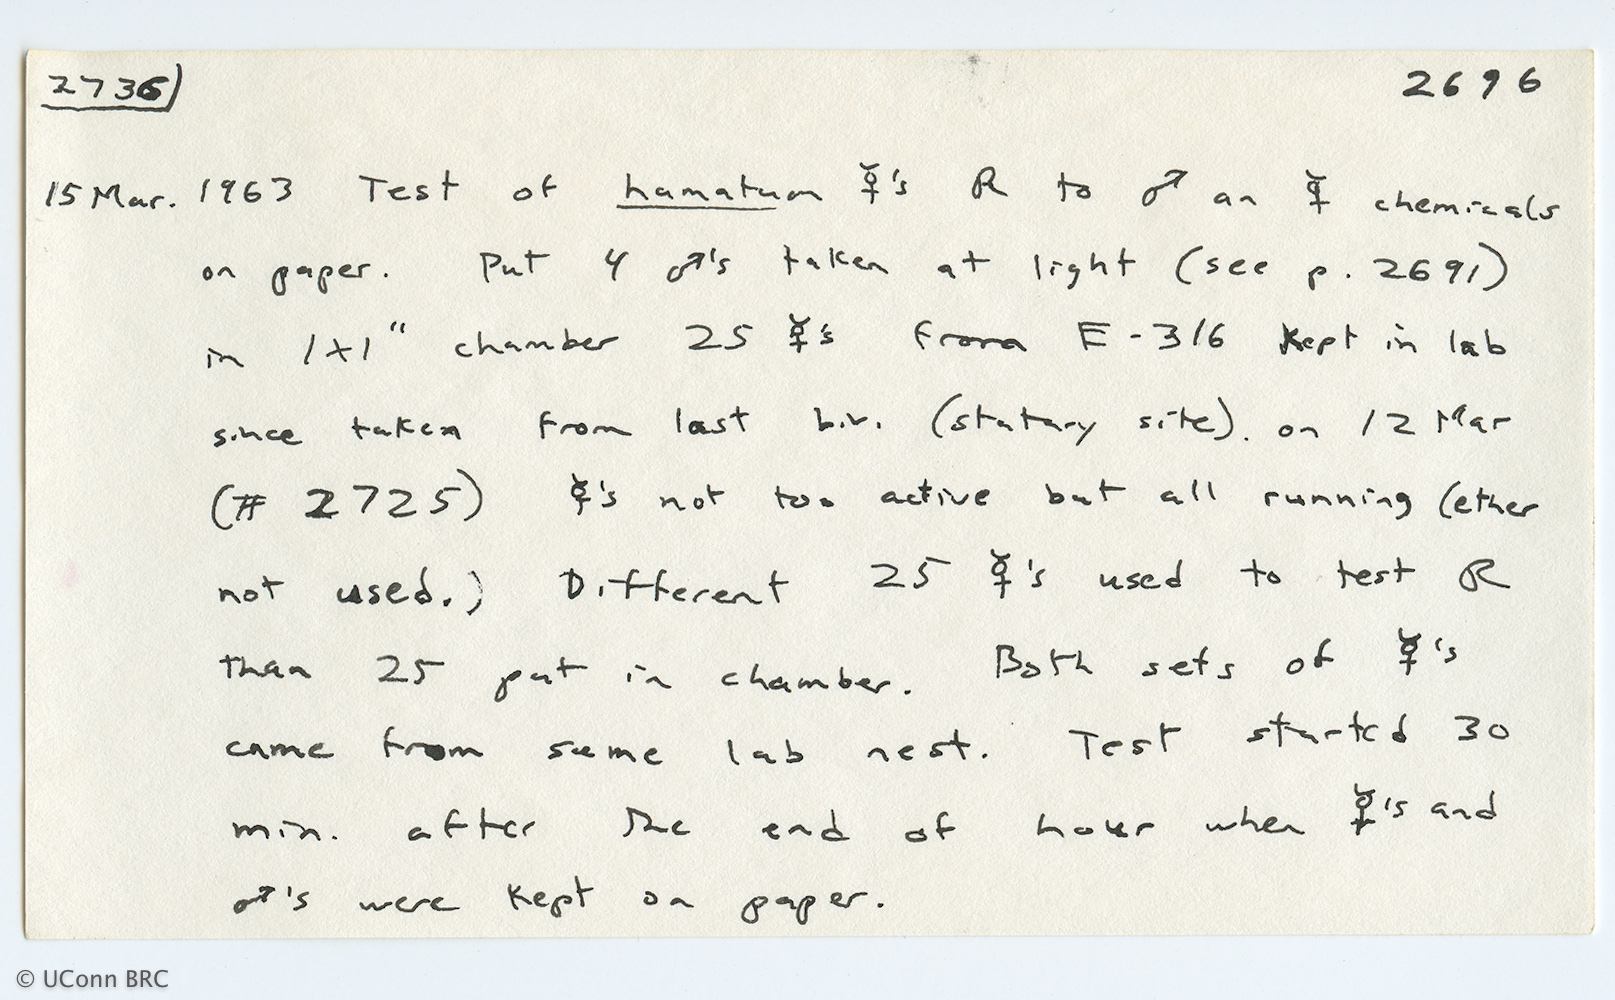 2736) 2696
15 Mar. 1963 Test of hamatum ☿'s R to ♂ an ☿ chemicals
on paper. Put 4 ♂'s taken at light (see p. 2691)
in 1x1" chamber 25 ☿'s from E-316 kept in lab
since taken from last biv. (statary site). on 12 Mar
(# 2725) ☿'s not too active but all running (ether
not used.) Different 25 ☿'s used to test R
than 25 put in chamber. Both sets of ☿'s
came from same lab nest. Test started 30
min. after the end of hour when ☿'s and
♂'s were kept on paper.
© UConn BRC